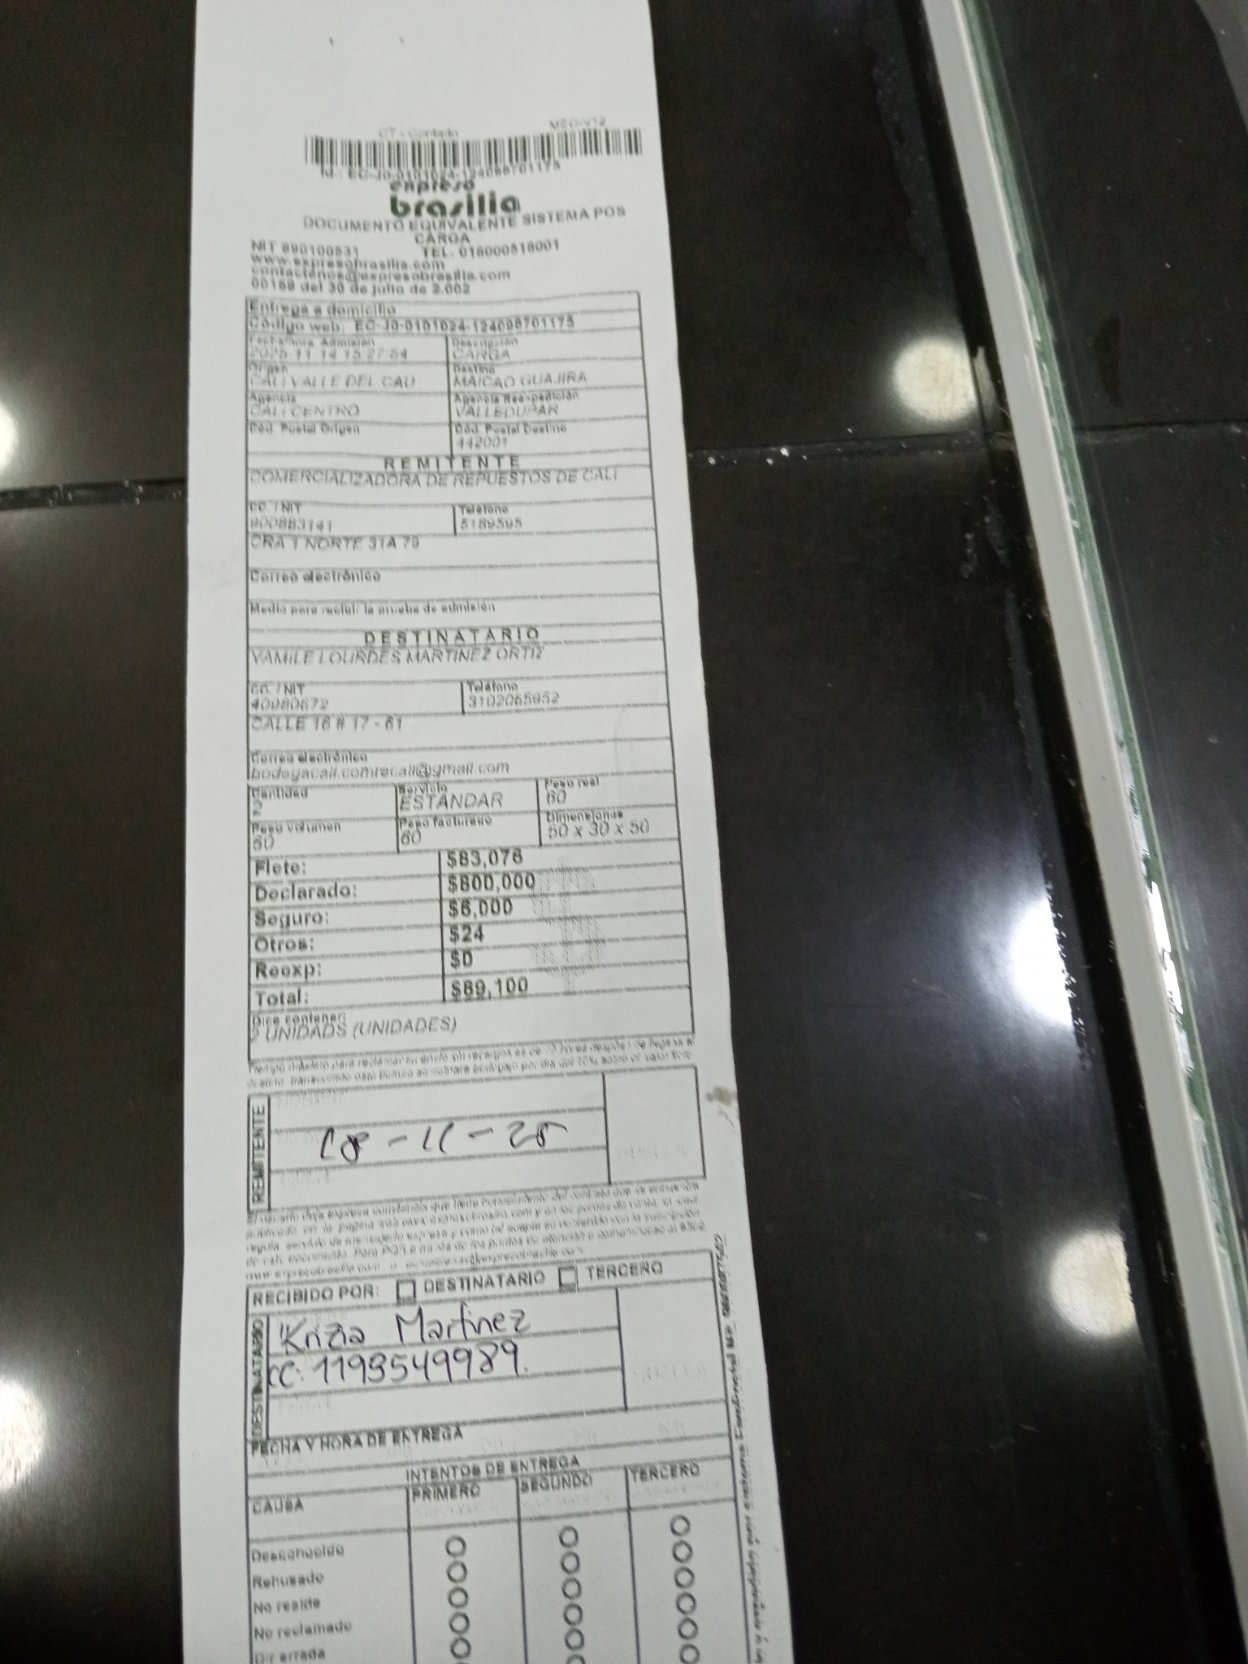 CT - Contado
Id.: EC-J0-0101024-124098701175
expreso
brasilia
DOCUMENTO EQUIVALENTE SISTEMA POS
CARGA
NIT 890100531 TEL. 018000518001
www.expresobrasilia.com
contactenos@expresobrasilia.com
00189 del 30 de julio de 2.002
Entrega a domicilio
Código web: EC-J0-0101024-124098701175
Fecha/Hora Admisión Descripción
2025-11-14 15:27:54 CARGA
Origen Destino
CALI VALLE DEL CAU MAICAO GUAJIRA
Agencia Agencia Reexpedición
CALI CENTRO VALLEDUPAR
Cód. Postal Origen Cód. Postal Destino
442001
REMITENTE
COMERCIALIZADORA DE REPUESTOS DE CALI
CC. / NIT Teléfono
900883141 5189595
CRA 1 NORTE 31A 79
Correo electrónico
Medio para recibir la prueba de admisión
DESTINATARIO
YAMILE LOURDES MARTINEZ ORTIZ
CC. / NIT Teléfono
40980672 3102065952
CALLE 16 # 17 - 61
Correo electrónico
bodegacali.comrecali@gmail.com
Cantidad Servicio Peso real
2 ESTÁNDAR 60
Peso volumen Peso facturado Dimensiones
60 60 50 x 30 x 50
Flete: $83,076
Declarado: $800,000
Seguro: $6,000
Otros: $24
Reexp: $0
Total: $89,100
Dice contener:
2 UNIDADS (UNIDADES)
REMITENTE
18-11-25
RECIBIDO POR: DESTINATARIO TERCERO
DESTINATARIO
Krizia Martinez
CC: 1193549989.
FECHA Y HORA DE ENTREGA
INTENTOS DE ENTREGA
CAUSA PRIMERO SEGUNDO TERCERO
Desconocido
Rehusado
No reside
No reclamado
Dir errada